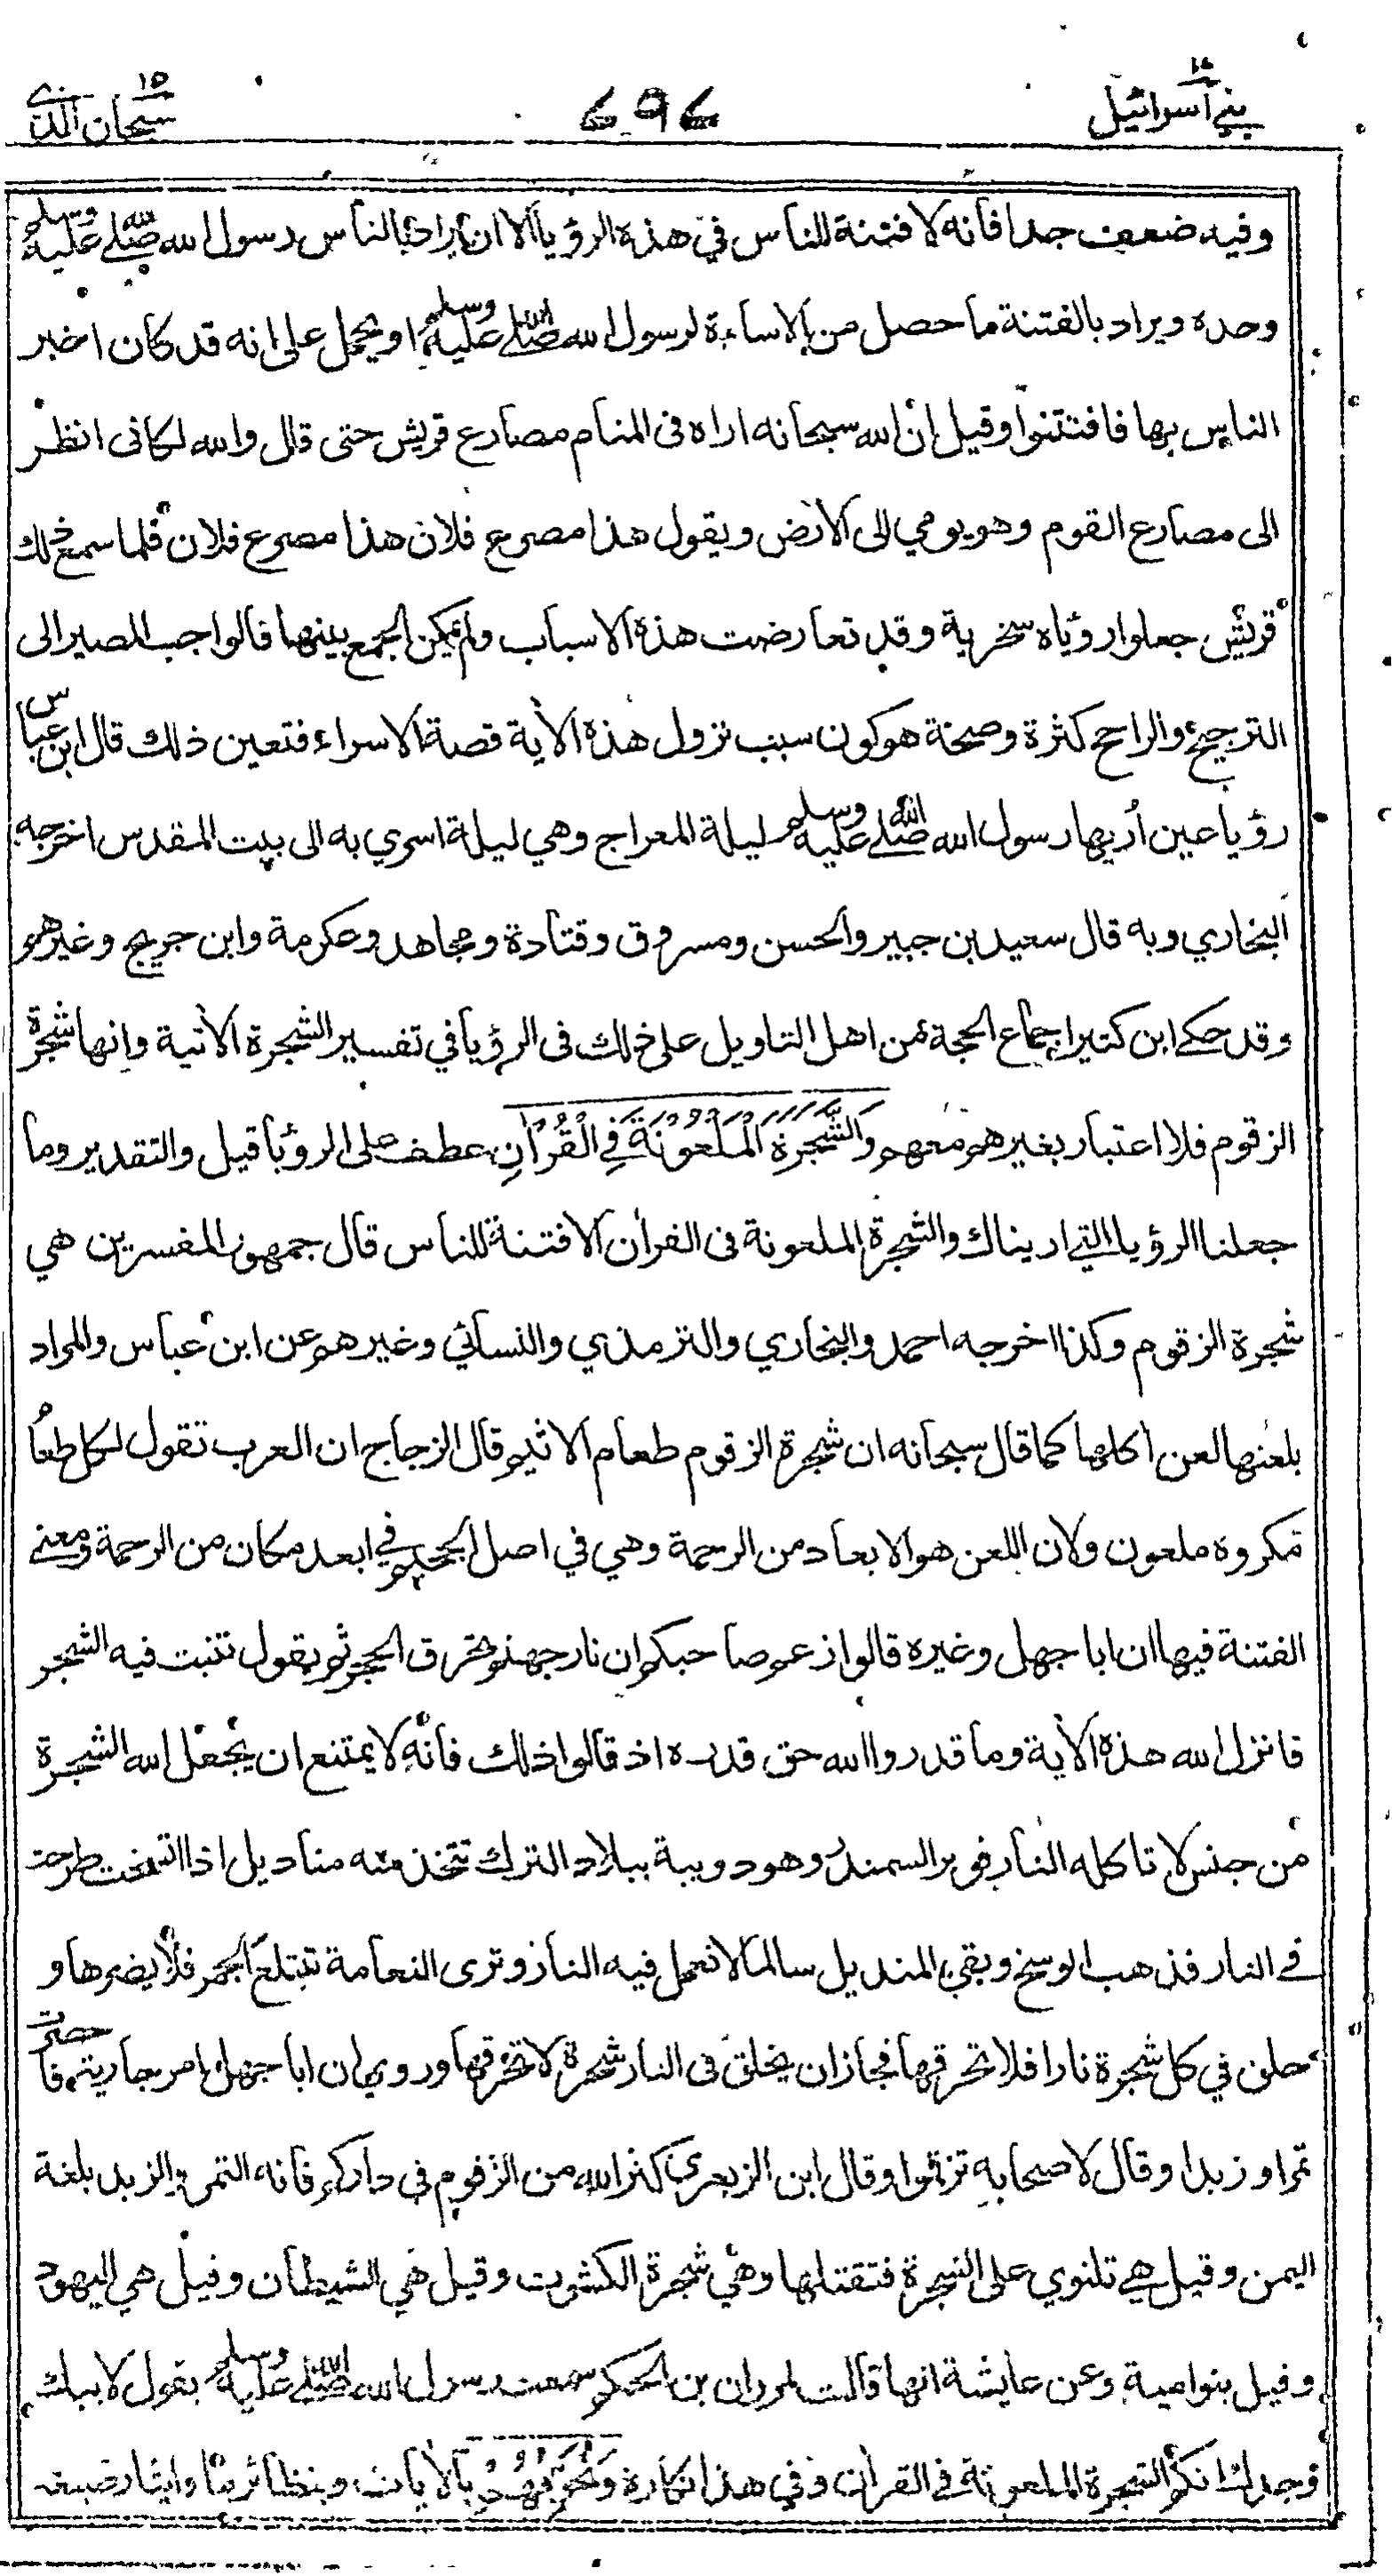 بني اسرائيل ١٧
٦٩٤
سبحان الذي ١٥
وفيه ضعف جدا فانه لا فتنة للناس في هذه الرؤيا الا ان يراد بالناس رسول الله صلى الله عليه وسلم
وحده ويراد بالفتنة ما حصل من الاساءة لرسول الله صلى الله عليه وسلم او يحمل على انه قد كان اخبر
الناس بها فافتتنوا وقيل ان الله سبحانه اراه فى المنام مصارع قريش حتى قال والله لكانى انظر
الى مصارع القوم وهو يومي الى الارض ويقول هذا مصرع فلان هذا مصرع فلان فلما سمع ذلك
قريش جعلوا رؤياه سخرية وقد تعارضت هذه الاسباب ولم يمكن الجمع بينها فالواجب المصير الى
الترجيح والراجح كثرة وصحة هو كون سبب نزول هذه الأية قصة الاسراء فتعين ذلك قال ابن عباس
رؤيا عين أريها رسول الله صلى الله عليه وسلم ليلة المعراج وهي ليلة اسري به الى بيت المقدس اخرجه
البخاري وبه قال سعيد بن جبير والحسن ومسروق وقتادة ومجاهد وعكرمة وابن جريج وغيرهم
وقد حكى ابن كثير اجماع الحجة من اهل التاويل على ذلك فى الرؤيا في تفسير الشجرة الأتية وانها شجرة
الزقوم فلا اعتبار بغيرهم معهم وَالشَّجَرَةَ الْمَلْعُونَةَ فِي الْقُرْآنِ عطف على الرؤيا قيل والتقدير وما
جعلنا الرؤيا التي اريناك والشجرة الملعونة فى القرأن الا فتنة للناس قال جمهور المفسرين هي
شجرة الزقوم وكذا اخرجه احمد والبخاري والترمذي والنسائي وغيرهم عن ابن عباس والمراد
بلعنها لعن اكلها كما قال سبحانه ان شجرة الزقوم طعام الاثيم وقال الزجاج ان العرب تقول لكل طعام
مكروه ملعون ولان اللعن هو الابعاد من الرحمة وهي في اصل الجحيم في ابعد مكان من الرحمة ومعنى
الفتنة فيها ان ابا جهل وغيره قالوا زعم صاحبكم ان نار جهنم تحرق الحجر ثم يقول تنبت فيه الشجر
فانزل الله هذه الأية وما قدروا الله حق قدره اذ قالوا ذلك فانه لا يمتنع ان يجعل الله الشجرة
من جنس لا تاكله النار فوبر السمندر وهو دويبة ببلاد الترك تتخذ منه مناديل اذا اتسخت طرحت
في النار فذهب الوسخ وبقي المنديل سالما لا تعمل فيه النار وترى النعامة تبتلع الجمر فلا يضرها و
خلق في كل شجرة نارا فلا تحرقها فجاز ان يخلق فى النار شجرة لا تحرقها وروي ان ابا جهل امر جارية فاحضرت
تمرا وزبدا وقال لاصحابه تزقموا وقال ابن الزبعرى كثر الله من الزقوم في داركم فانه التمر والزبد بلغة
اليمن وقيل هي تلتوي على الشجرة فتقتلها وهي شجرة الكشوث وقيل هي الشيطان وقيل هي اليهود
وقيل بنو امية وعن عايشة انها قالت لمروان بن الحكم سمعت رسول الله صلى الله عليه وسلم يقول لابيك
وجدك انكم الشجرة الملعونة في القرأن وفي هذا نكارة وَنُخَوِّفُهُمْ بالأيات وبنظائرها وايثار صيغة